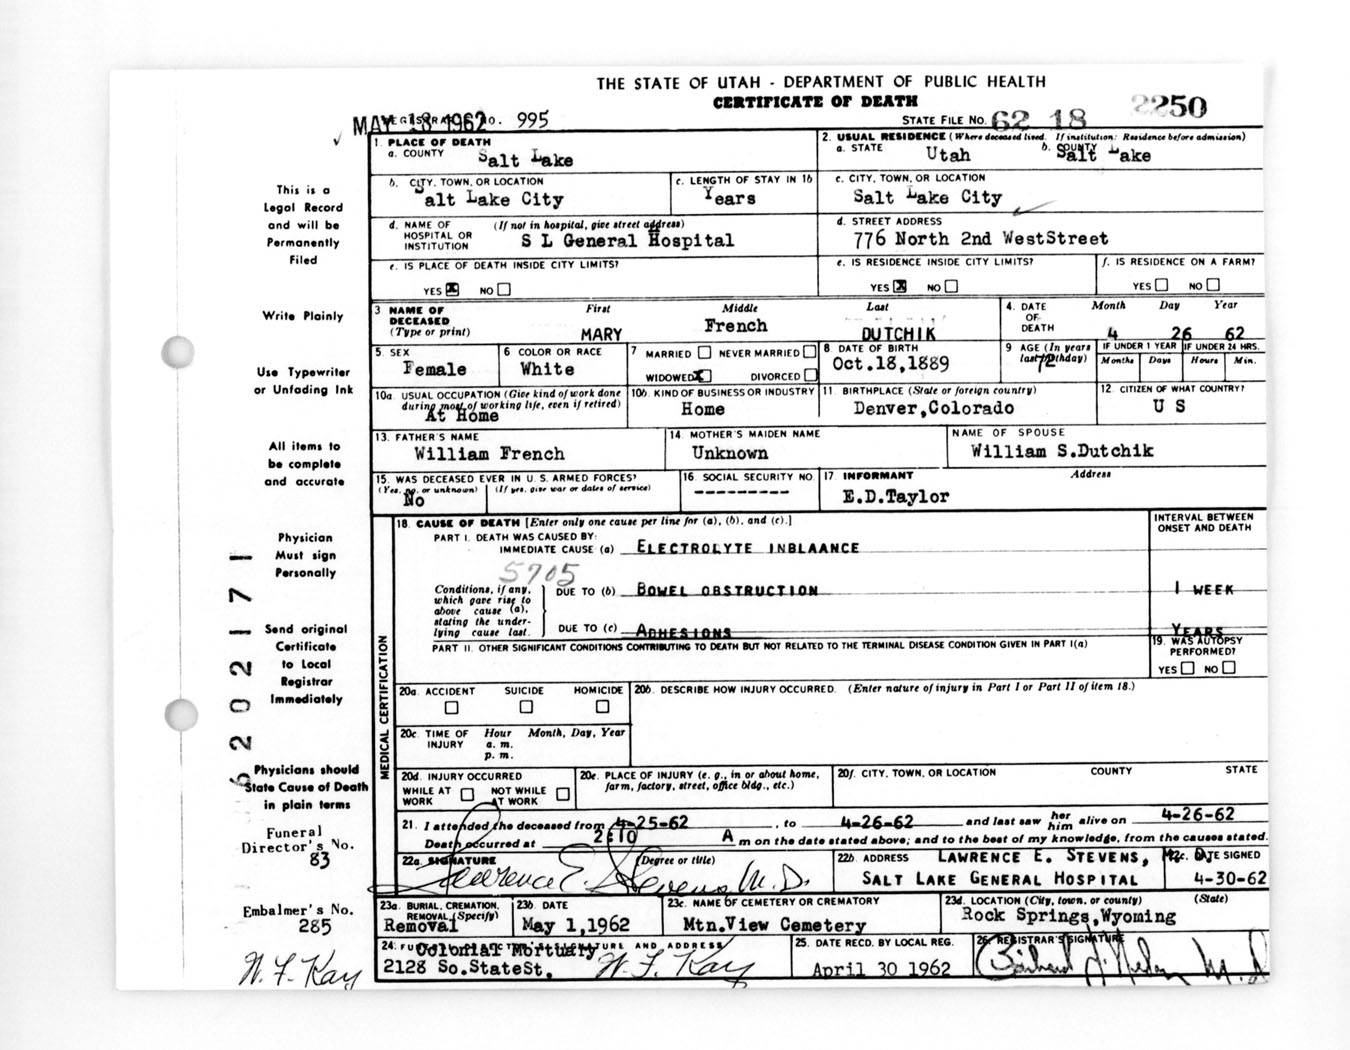 THE STATE OF UTAH - DEPARTMENT OF PUBLIC HEALTH
CERTIFICATE OF DEATH
2250
MAY 18 1962
REGISTRAR'S NO. 995
STATE FILE NO. 62 18
1. PLACE OF DEATH
a. COUNTY Salt Lake
2. USUAL RESIDENCE (Where deceased lived. If institution: Residence before admission)
a. STATE Utah b. COUNTY Salt Lake
b. CITY, TOWN, OR LOCATION
Salt Lake City
c. LENGTH OF STAY IN 1b
Years
c. CITY, TOWN, OR LOCATION
Salt Lake City
d. NAME OF HOSPITAL OR INSTITUTION (If not in hospital, give street address)
S L General Hospital
d. STREET ADDRESS
776 North 2nd WestStreet
e. IS PLACE OF DEATH INSIDE CITY LIMITS?
YES X NO
e. IS RESIDENCE INSIDE CITY LIMITS?
YES X NO
f. IS RESIDENCE ON A FARM?
YES NO
3 NAME OF DECEASED (Type or print)
First Middle Last
MARY French DUTCHIK
4. DATE OF DEATH
Month Day Year
4 26 62
5. SEX
Female
6 COLOR OR RACE
White
7 MARRIED NEVER MARRIED
WIDOWED X DIVORCED
8 DATE OF BIRTH
Oct.18,1889
9 AGE (In years last birthday)
72
IF UNDER 1 YEAR
Months Days
IF UNDER 24 HRS.
Hours Min.
10a. USUAL OCCUPATION (Give kind of work done during most of working life, even if retired)
At Home
10b. KIND OF BUSINESS OR INDUSTRY
Home
11. BIRTHPLACE (State or foreign country)
Denver,Colorado
12. CITIZEN OF WHAT COUNTRY?
U S
13. FATHER'S NAME
William French
14. MOTHER'S MAIDEN NAME
Unknown
NAME OF SPOUSE
William S.Dutchik
15. WAS DECEASED EVER IN U. S. ARMED FORCES?
(Yes, no, or unknown) (If yes, give war or dates of service)
No
16. SOCIAL SECURITY NO.
----------
17. INFORMANT Address
E.D.Taylor
MEDICAL CERTIFICATION
18. CAUSE OF DEATH [Enter only one cause per line for (a), (b), and (c).]
INTERVAL BETWEEN ONSET AND DEATH
PART I. DEATH WAS CAUSED BY:
IMMEDIATE CAUSE (a) ELECTROLYTE INBLAANCE
5705
Conditions, if any, which gave rise to above cause (a), stating the underlying cause last.
DUE TO (b) BOWEL OBSTRUCTION 1 WEEK
DUE TO (c) ADHESIONS YEARS
PART II. OTHER SIGNIFICANT CONDITIONS CONTRIBUTING TO DEATH BUT NOT RELATED TO THE TERMINAL DISEASE CONDITION GIVEN IN PART I(a)
19. WAS AUTOPSY PERFORMED?
YES NO
20a. ACCIDENT SUICIDE HOMICIDE
20b. DESCRIBE HOW INJURY OCCURRED. (Enter nature of injury in Part I or Part II of item 18.)
20c. TIME OF INJURY Hour Month, Day, Year
a. m.
p. m.
20d. INJURY OCCURRED
WHILE AT WORK NOT WHILE AT WORK
20e. PLACE OF INJURY (e. g., in or about home, farm, factory, street, office bldg., etc.)
20f. CITY, TOWN, OR LOCATION COUNTY STATE
21. I attended the deceased from 4-25-62, to 4-26-62 and last saw her him alive on 4-26-62
Death occurred at 2:10 A m on the date stated above; and to the best of my knowledge, from the causes stated.
22a. SIGNATURE (Degree or title)
Lawrence E. Stevens, M.D.
22b. ADDRESS LAWRENCE E. STEVENS,
SALT LAKE GENERAL HOSPITAL
22c. DATE SIGNED
4-30-62
23a. BURIAL, CREMATION, REMOVAL (Specify)
Removal
23b. DATE
May 1,1962
23c. NAME OF CEMETERY OR CREMATORY
Mtn.View Cemetery
23d. LOCATION (City, town, or county) (State)
Rock Springs,Wyoming
24. FUNERAL DIRECTOR'S SIGNATURE AND ADDRESS
Colonial Mortuary
2128 So.StateSt. W. F. Kay
25. DATE RECD. BY LOCAL REG.
April 30 1962
26. REGISTRAR'S SIGNATURE
This is a
Legal Record
and will be
Permanently
Filed
Write Plainly
Use Typewriter
or Unfading Ink
All items to
be complete
and accurate
Physician
Must sign
Personally
Send original
Certificate
to Local
Registrar
Immediately
Physicians should
State Cause of Death
in plain terms
Funeral
Director's No.
83
Embalmer's No.
285
W. F. Kay
6202171